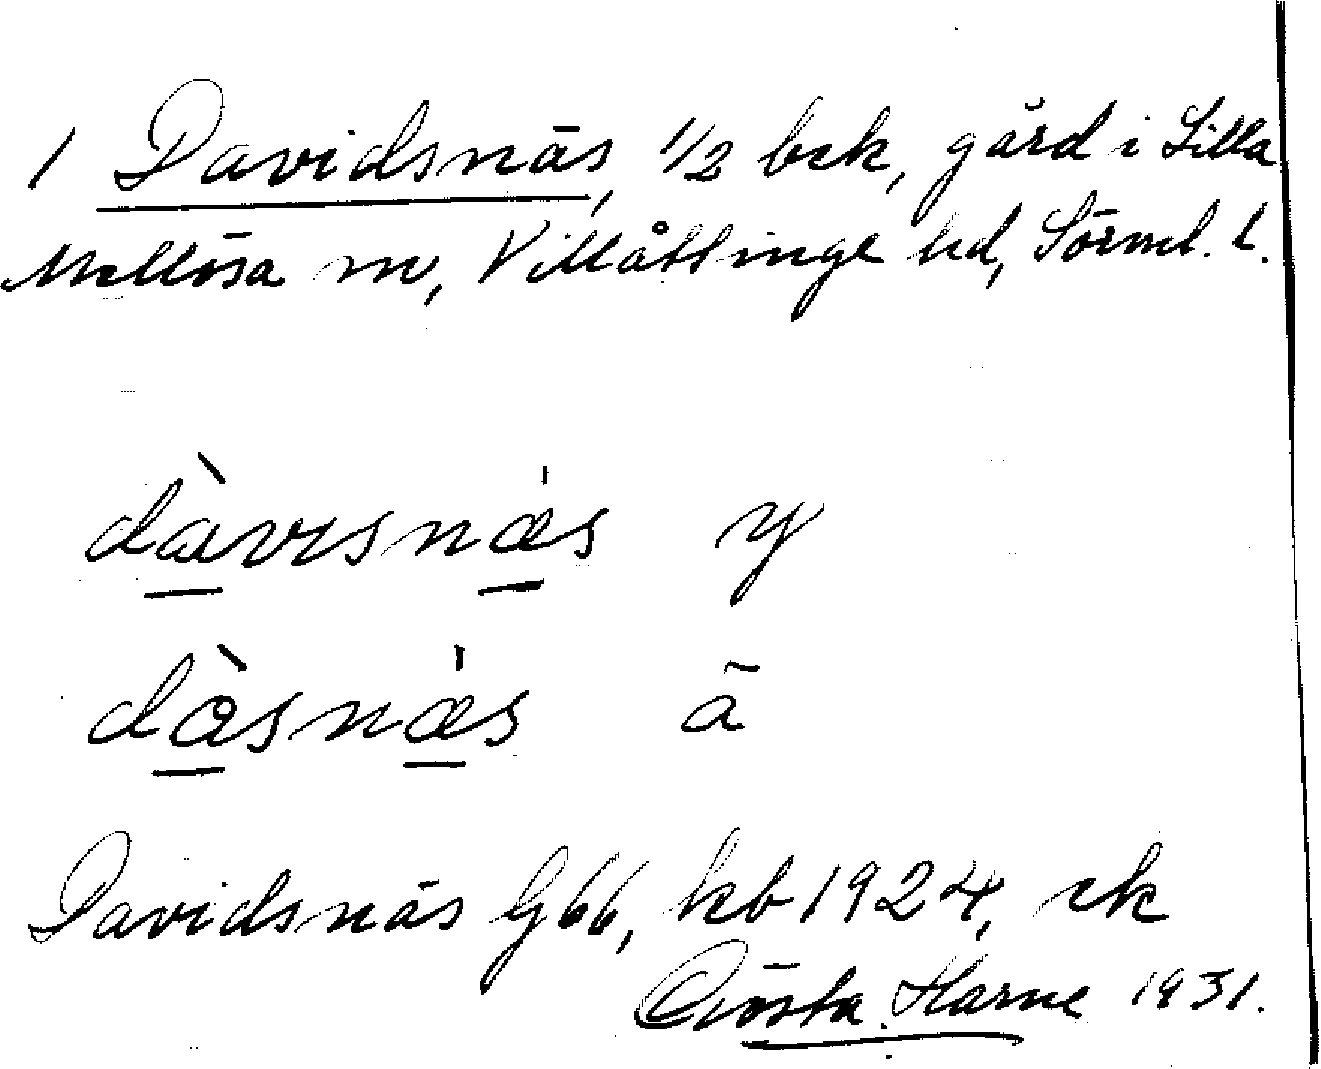 1 Davidsnäs, 1/2 bek, gård i Lilla
Mellösa sn, Villåttinge hd, Sörml. l.
dàvɩsnæ̀s y
dàsnæ̀s ä
Davidsnäs G66, kb 1924, ek
Gösta Harne 1931.